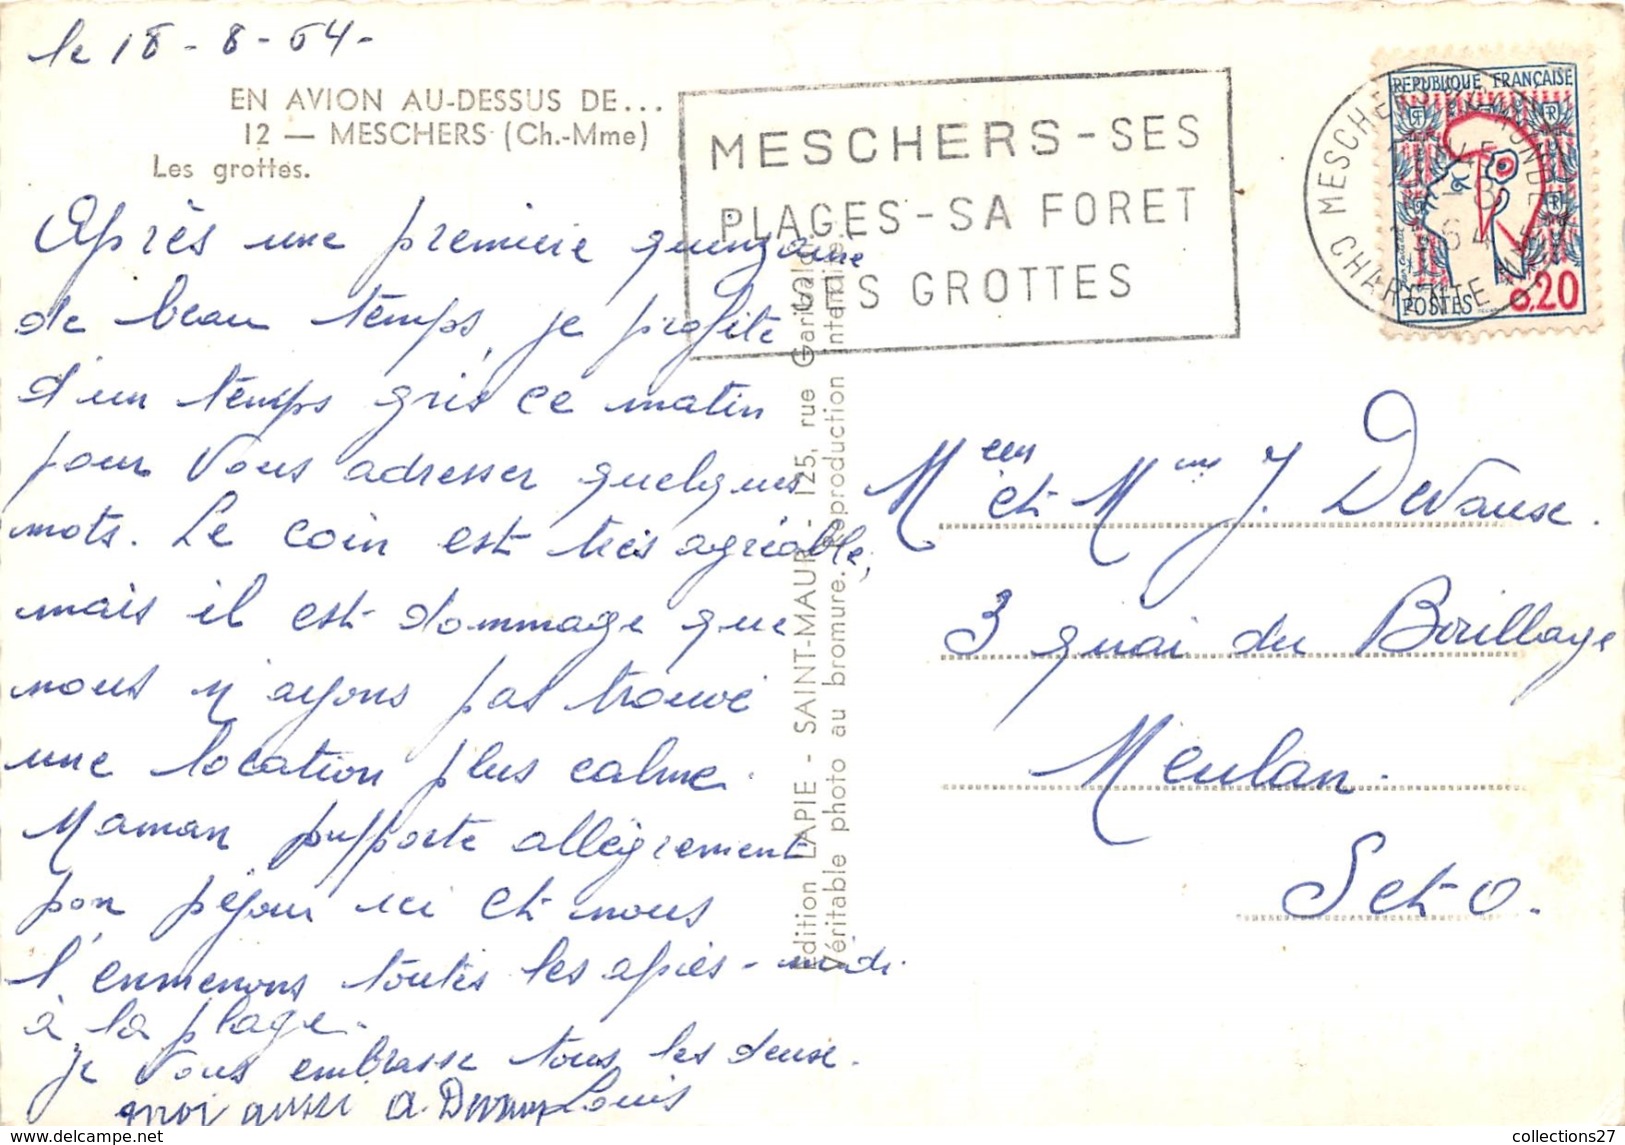 le 18-8-64-
EN AVION AU-DESSUS DE...
12 — MESCHERS (Ch.-Mme)
Les grottes.
Après une première quinzaine
de beau temps, je profite
d'un temps gris ce matin
pour vous adresser quelques
mots. Le coin est très agréable,
mais il est dommage que
nous n'ayons pas trouvé
une location plus calme.
Maman supporte allègrement
son séjour ici et nous
l'emmenons toutes les après-midi
à la plage.
Je vous embrasse tous les deux.
moi aussi Louis
MESCHERS - SES
PLAGES - SA FORET
SES GROTTES
Edition LAPIE - SAINT-MAUR - 125, rue Garibaldi
Véritable photo au bromure. Reproduction interdite.
MESCHERS
CHARENTE MME
64
REPUBLIQUE FRANÇAISE
POSTES
0,20
et Mme J. Devause.
3 quai du
Meulan.
S et O.
collections27